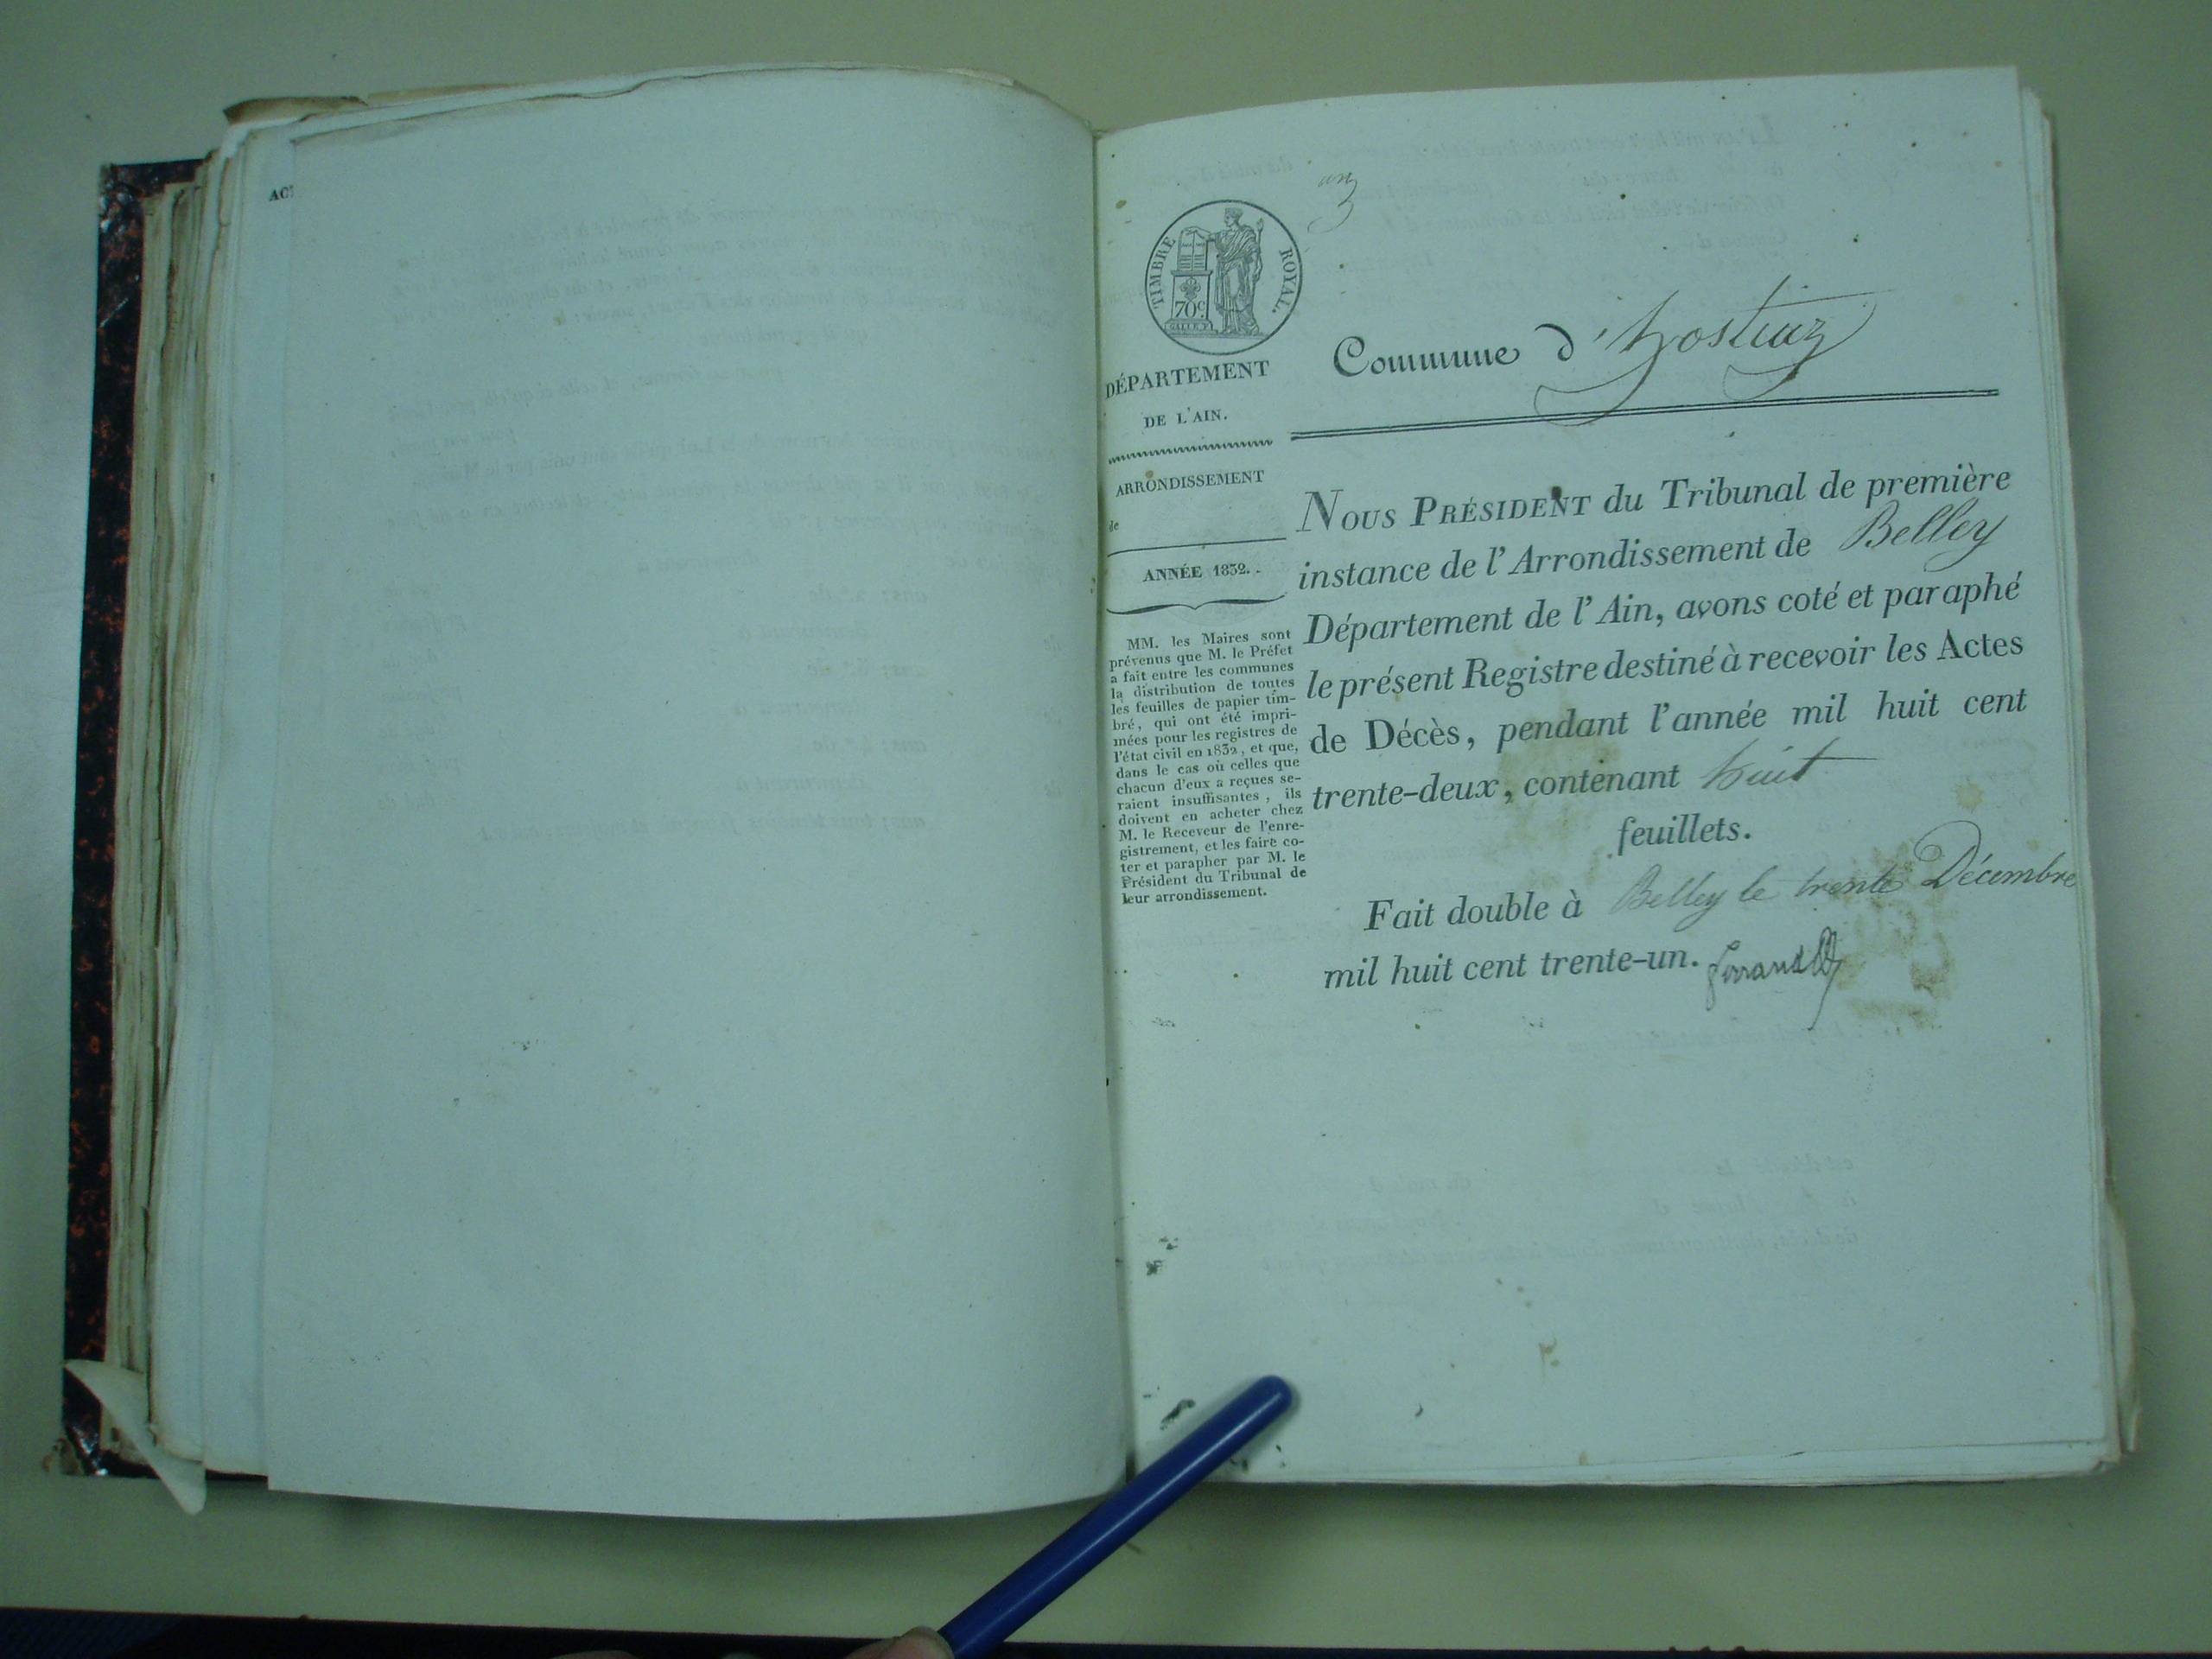 AC
TIMBRE ROYAL.
70c.
DÉPARTEMENT
DE L'AIN.
ARRONDISSEMENT
de
ANNÉE 1832.
MM. les Maires sont
prévenus que M. le Préfet
a fait entre les communes
la distribution de toutes
les feuilles de papier tim-
bré, qui ont été impri-
mées pour les registres de
l'état civil en 1832, et que,
dans le cas où celles que
chacun d'eux a reçues se-
raient insuffisantes, ils
doivent en acheter chez
M. le Receveur de l'enre-
gistrement, et les faire co-
ter et parapher par M. le
Président du Tribunal de
leur arrondissement.
Commune d'hostiaz
NOUS PRÉSIDENT du Tribunal de première
instance de l'Arrondissement de Belley
Département de l'Ain, avons coté et paraphé
le présent Registre destiné à recevoir les Actes
de Décès, pendant l'année mil huit cent
trente-deux, contenant huit
feuillets.
Fait double à Belley le trente Décembre
mil huit cent trente-un.